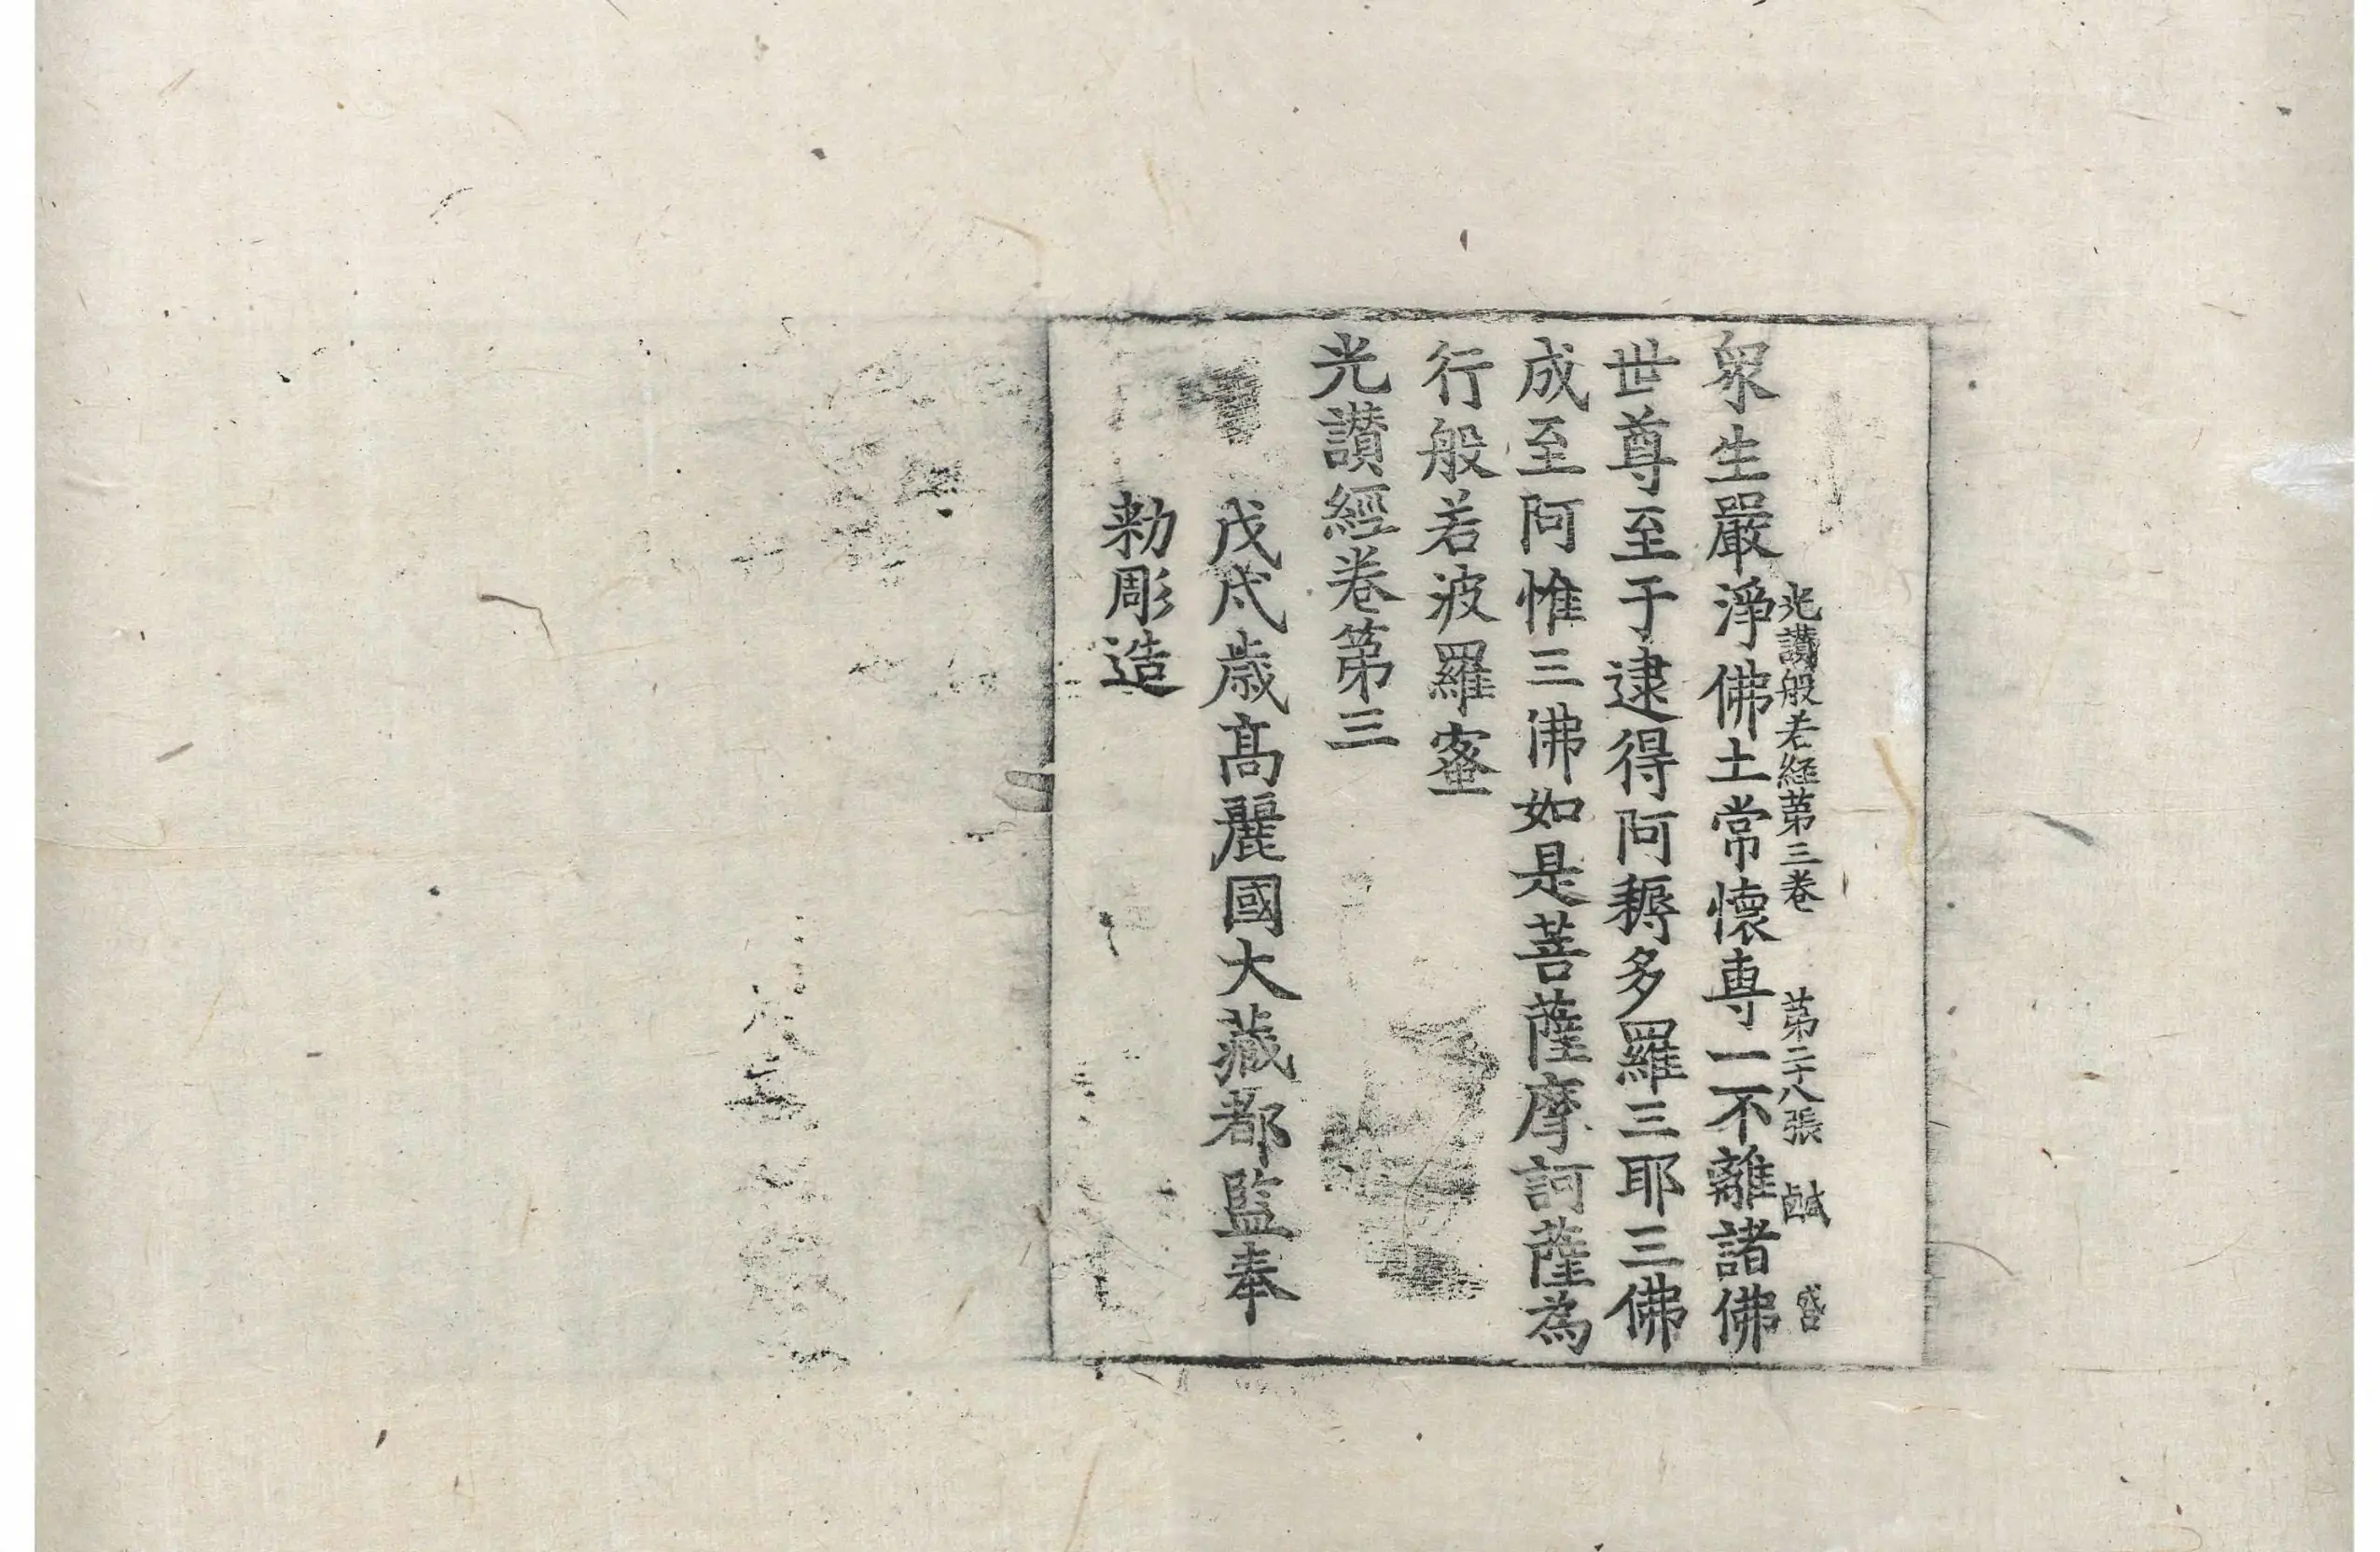 光讃般若経第三卷 第二十八張 鹹
衆生嚴淨佛土常懷専一不離諸佛
世尊至于逮得阿耨多羅三耶三佛
成至阿惟三佛如是菩薩摩訶薩為
行般若波羅蜜
光讃經卷第三
戊戌歳髙麗國大藏都監奉
勑彫造